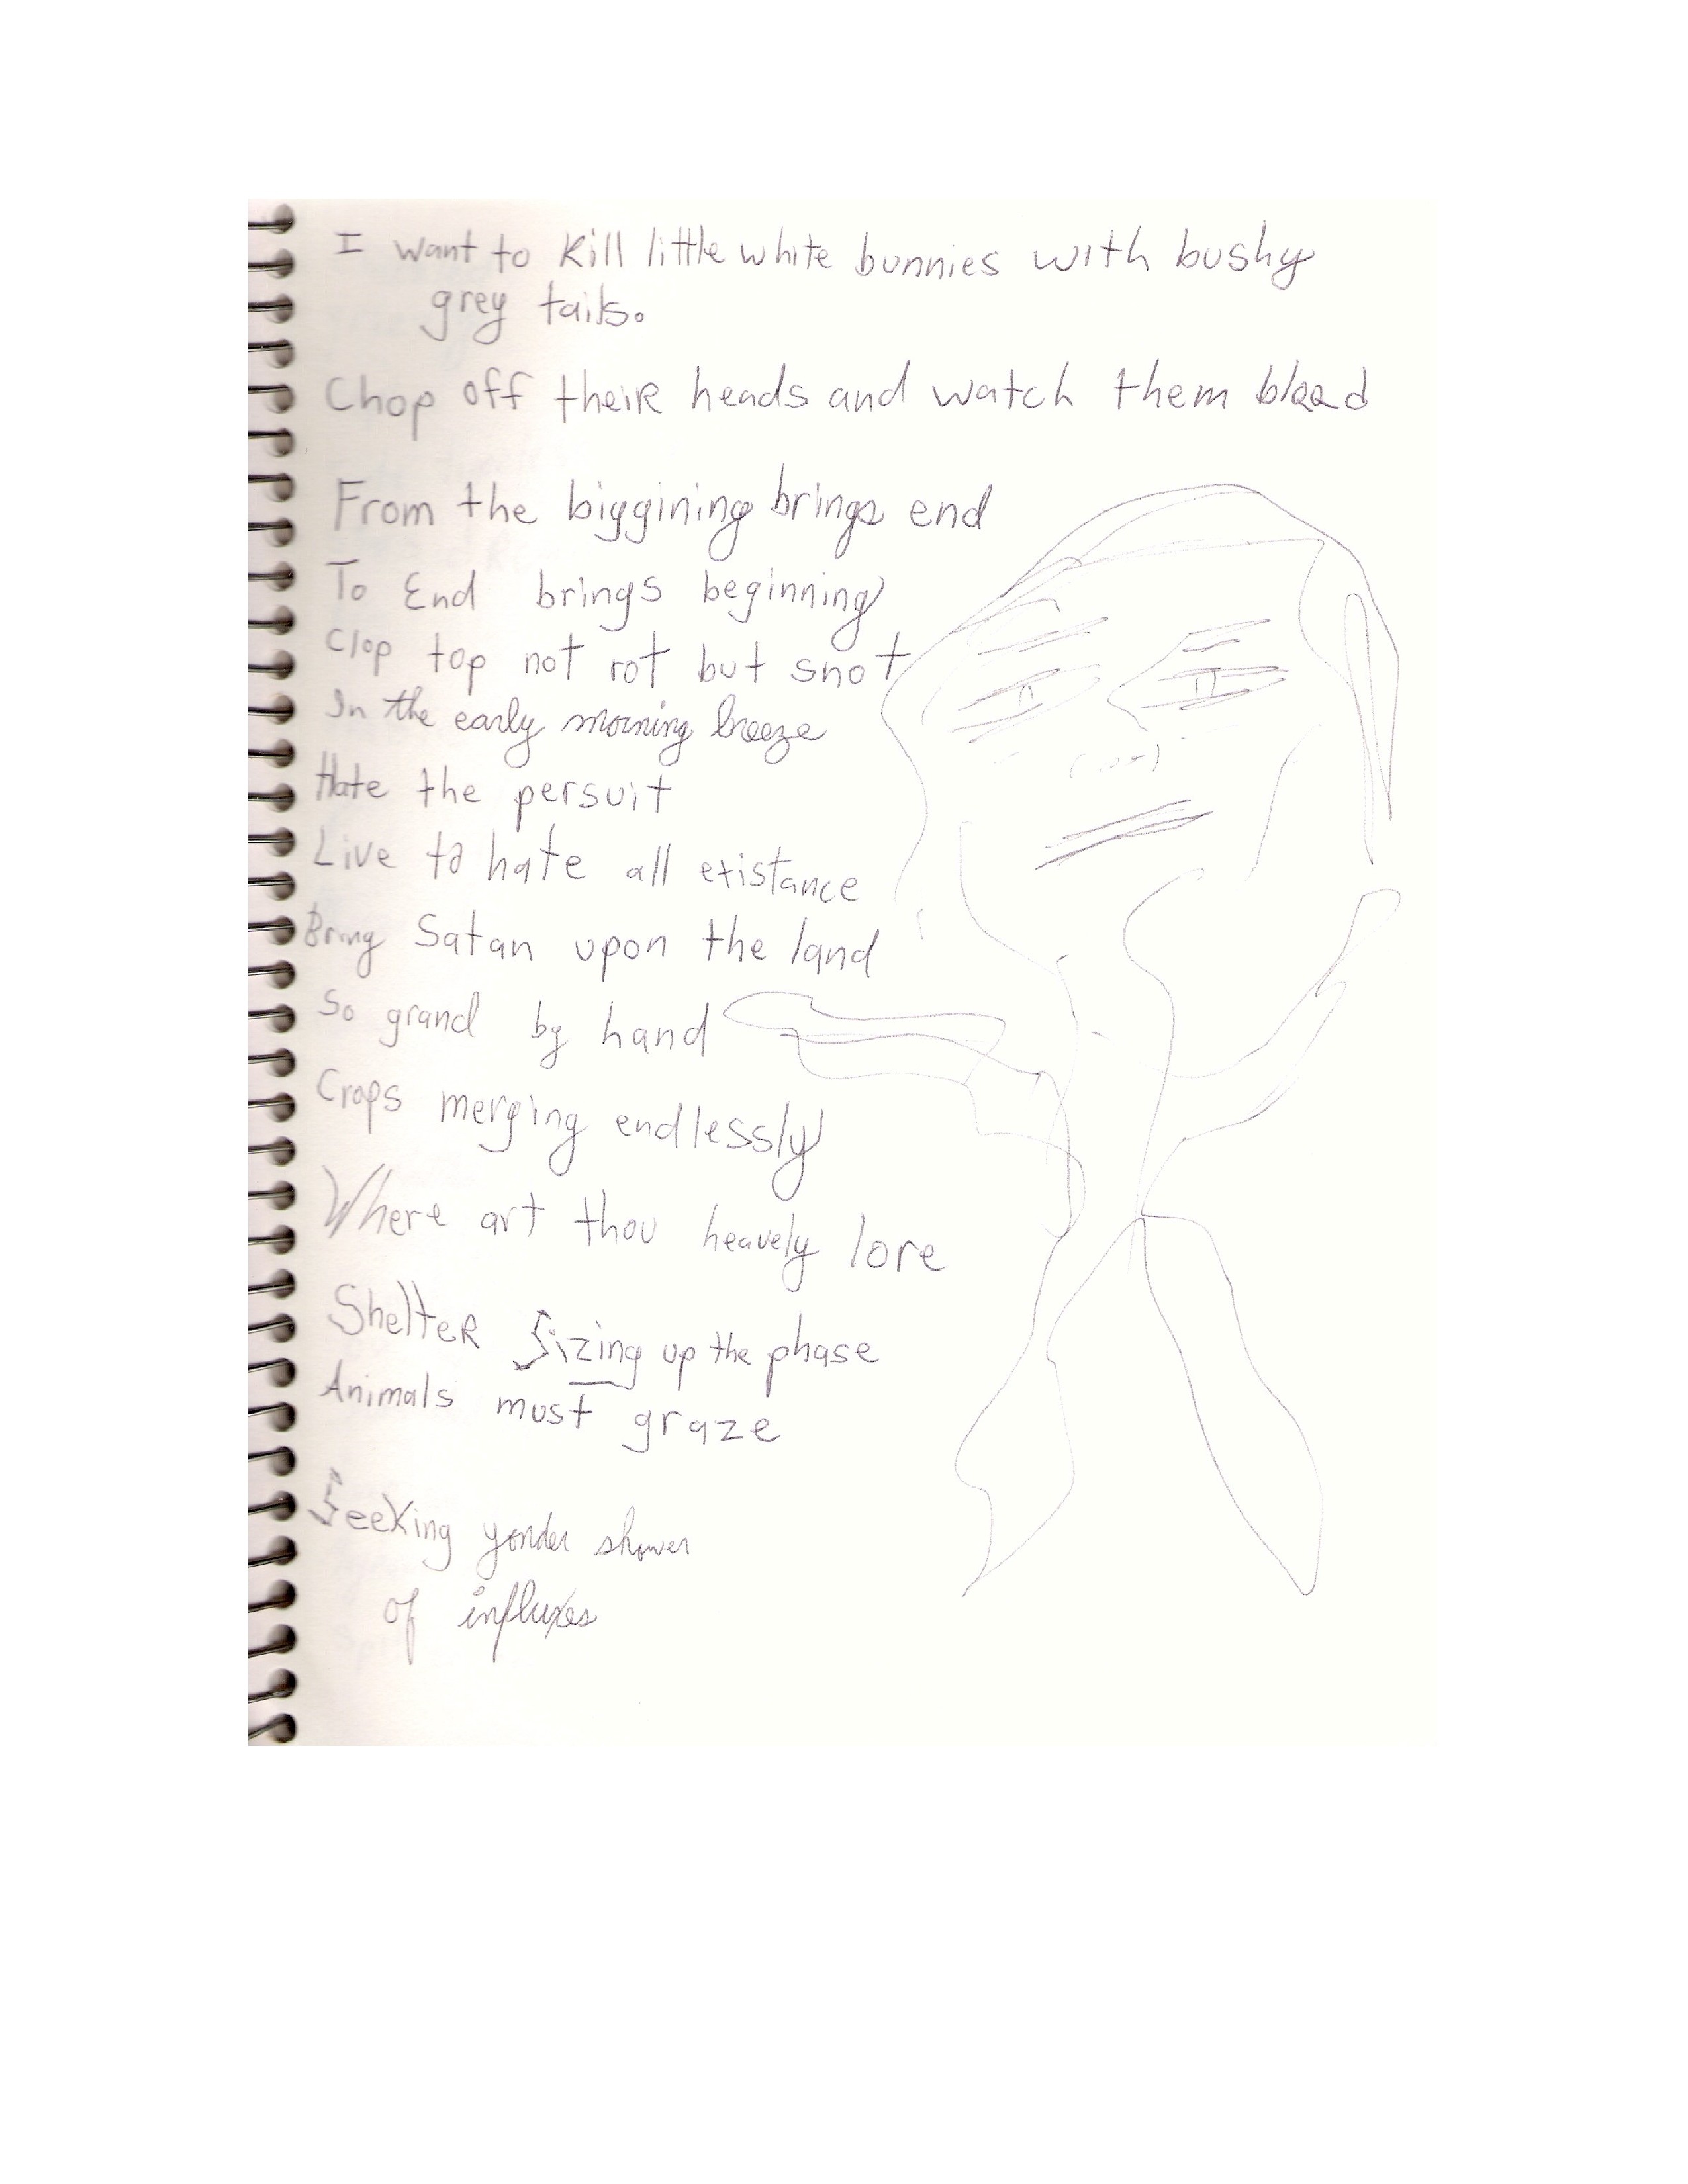 I want to Kill little white bunnies with bushy
grey tails.
Chop off theiR heads and watch them bleed
From the biggining brings end
To End brings beginning
Clop top not rot but snot
In the early morning breeze
Hate the persuit
Live to hate all existance
Bring Satan upon the land
So grand by hand
Crops merging endlessly
Where art thou heavely lore
ShelteR Sizing up the phase
Animals must graze
Seeking yonder shower
of influxes